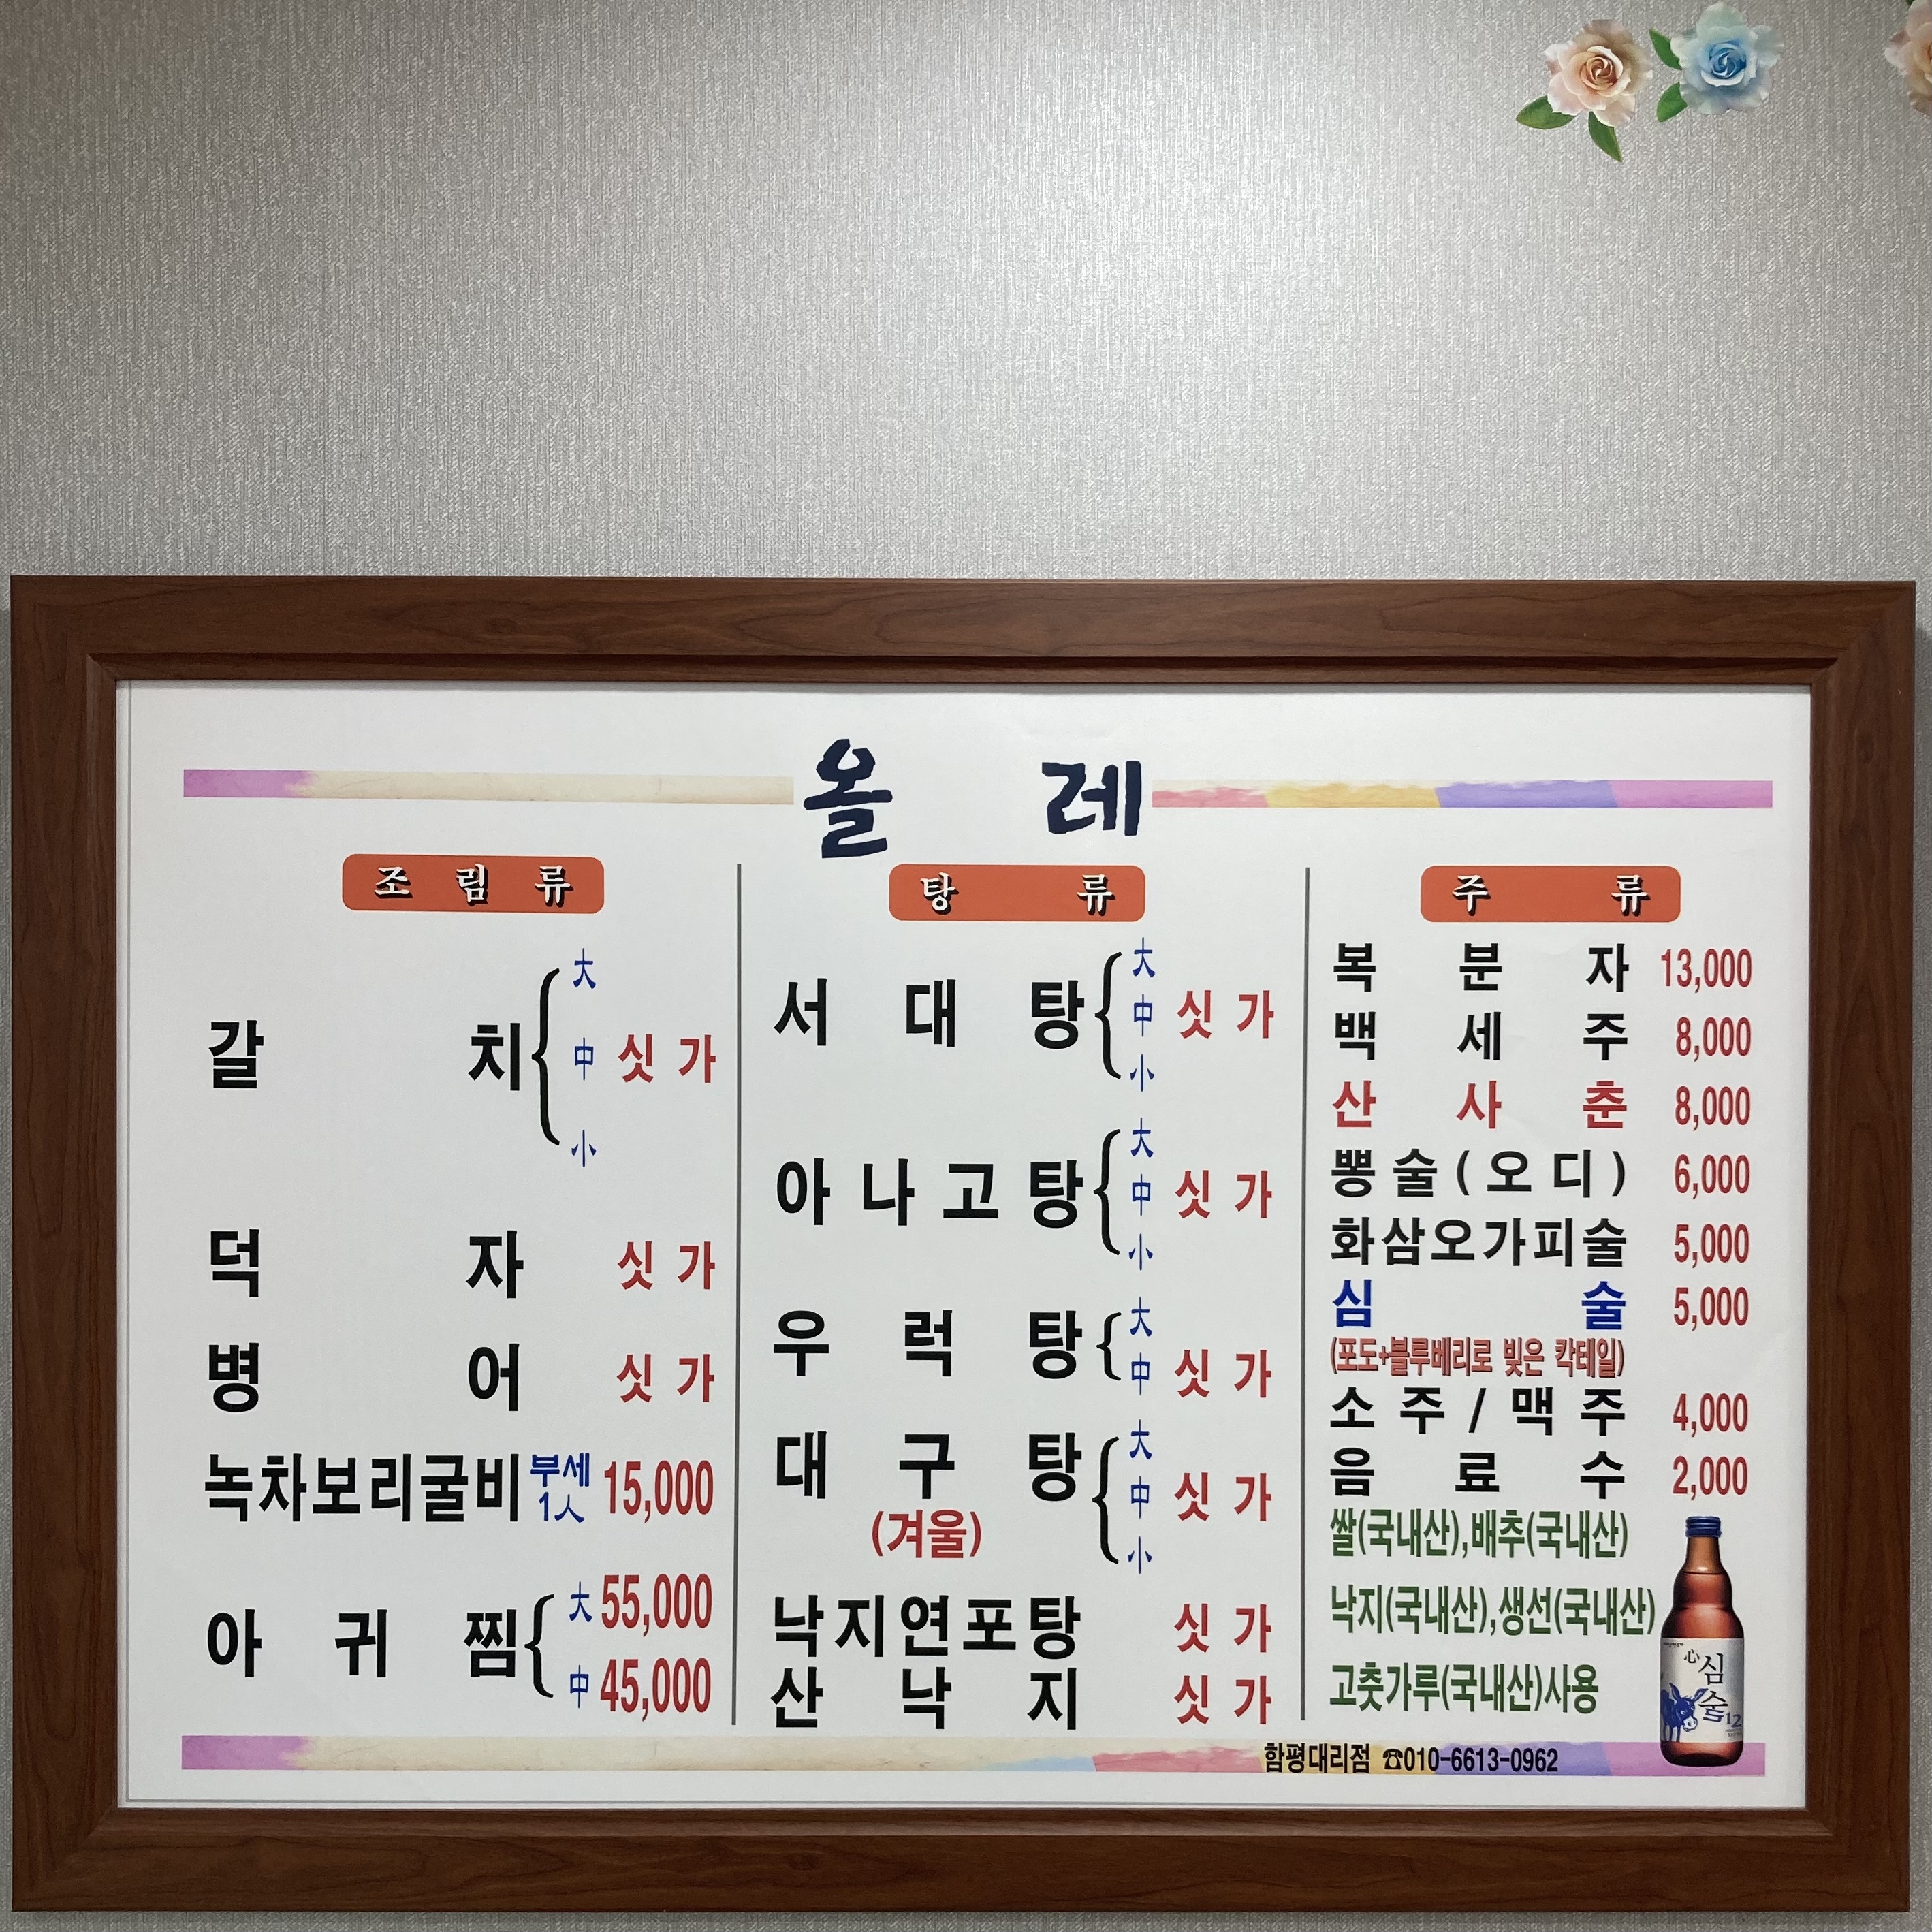 올 레
조 림 류
갈 치 大 中 小 싯 가
덕 자 싯 가
병 어 싯 가
녹차보리굴비 부세 1人 15,000
아 귀 찜 大 55,000
中 45,000
탕 류
서 대 탕 大 中 小 싯 가
아 나 고 탕 大 中 小 싯 가
우 럭 탕 大 中 싯 가
대 구 탕 大 中 小 싯 가
(겨울)
낙지연포탕 싯 가
산 낙 지 싯 가
주 류
복 분 자 13,000
백 세 주 8,000
산 사 춘 8,000
뽕 술 ( 오 디 ) 6,000
화삼오가피술 5,000
심 술 5,000
(포도+블루베리로 빚은 칵테일)
소 주 / 맥 주 4,000
음 료 수 2,000
쌀(국내산),배추(국내산)
낙지(국내산),생선(국내산)
고춧가루(국내산)사용
心 심
술 12
함평대리점 ☎010-6613-0962